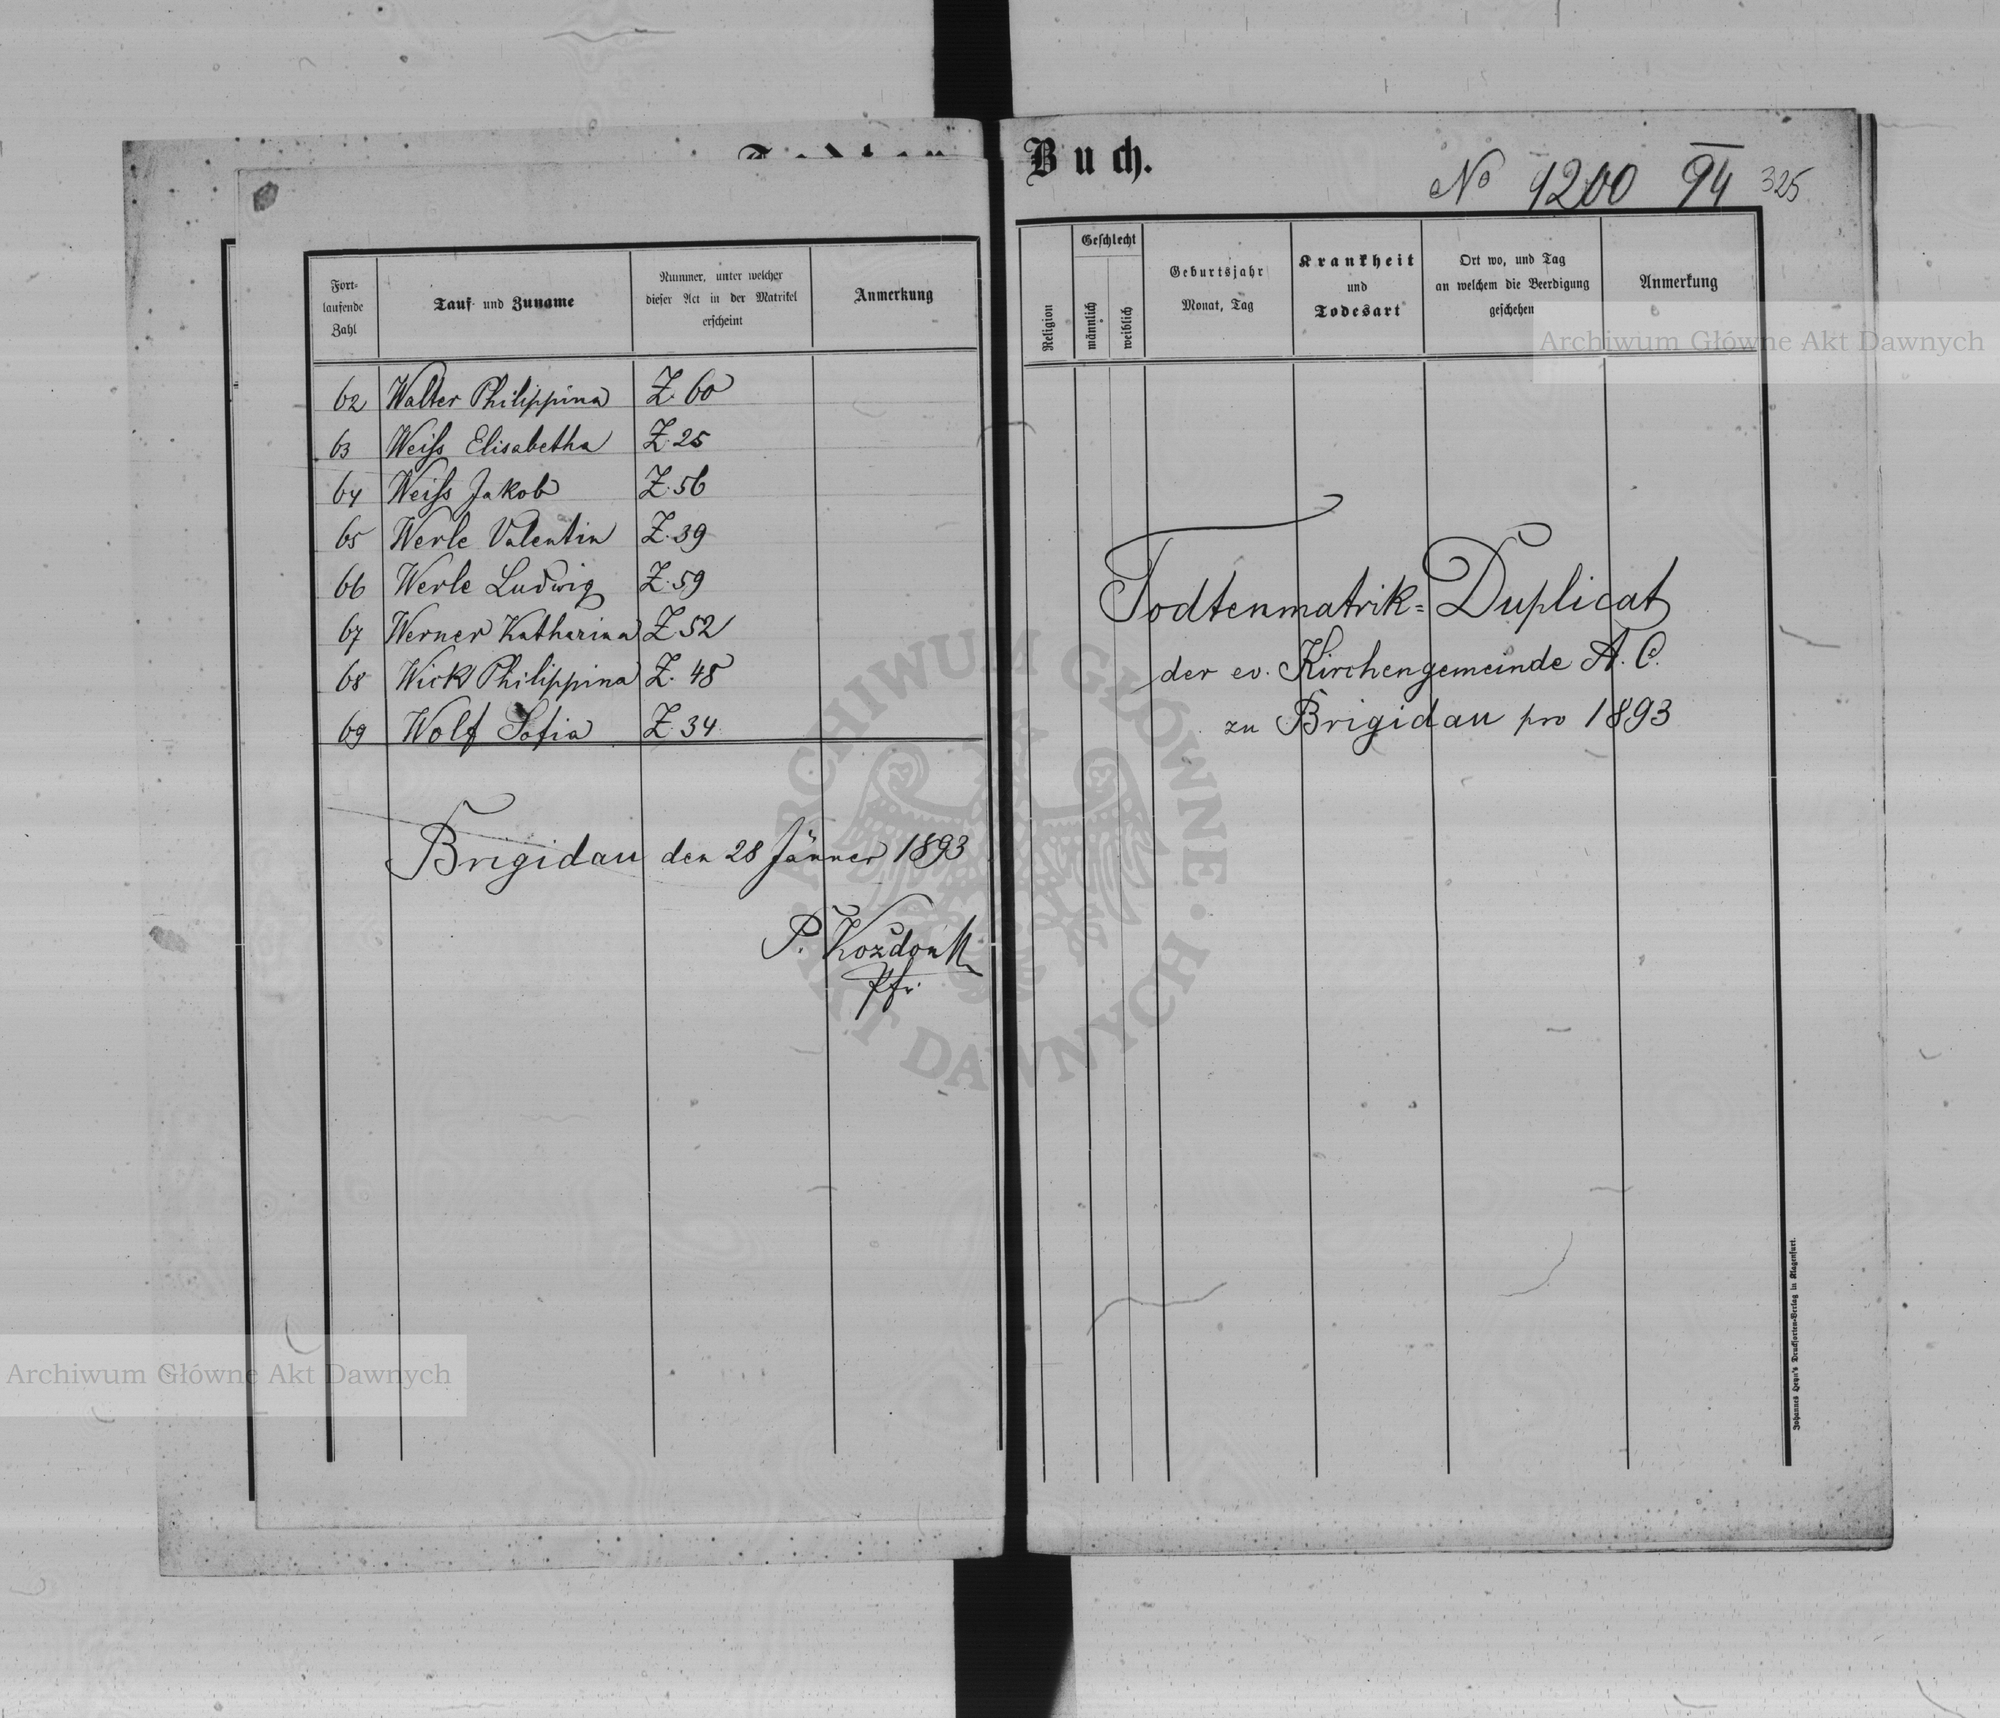 Buch.
No 1200 94 325
Fortlaufende Zahl
Tauf- und Zuname
Nummer, unter welcher dieser Act in der Matrikel erscheint
Anmerkung
62 Walter Philippina Z. 60
63 Weiſs Elisabetha Z. 25
64 Weiſs Jakob Z. 56
65 Werle Valentin Z. 39
66 Werle Ludwig Z. 59
67 Werner Katharina Z. 52
68 Wick Philippina Z. 48
69 Wolf Sofia Z. 34
Brigidau den 28 Jänner 1893
P. Kozdon
Pfr.
Religion
Geschlecht
männlich
weiblich
Geburtsjahr
Monat, Tag
Krankheit
und
Todesart
Ort wo, und Tag
an welchem die Beerdigung
geschehen
Anmerkung
Todtenmatrik=Duplicat
der ev. Kirchengemeinde A. C.
zu Brigidau pro 1893
Johannes Heyn's Drucksorten-Verlag in Klagenfurt.
Archiwum Główne Akt Dawnych
ARCHIWUM GŁÓWNE • AKT DAWNYCH
Archiwum Główne Akt Dawnych